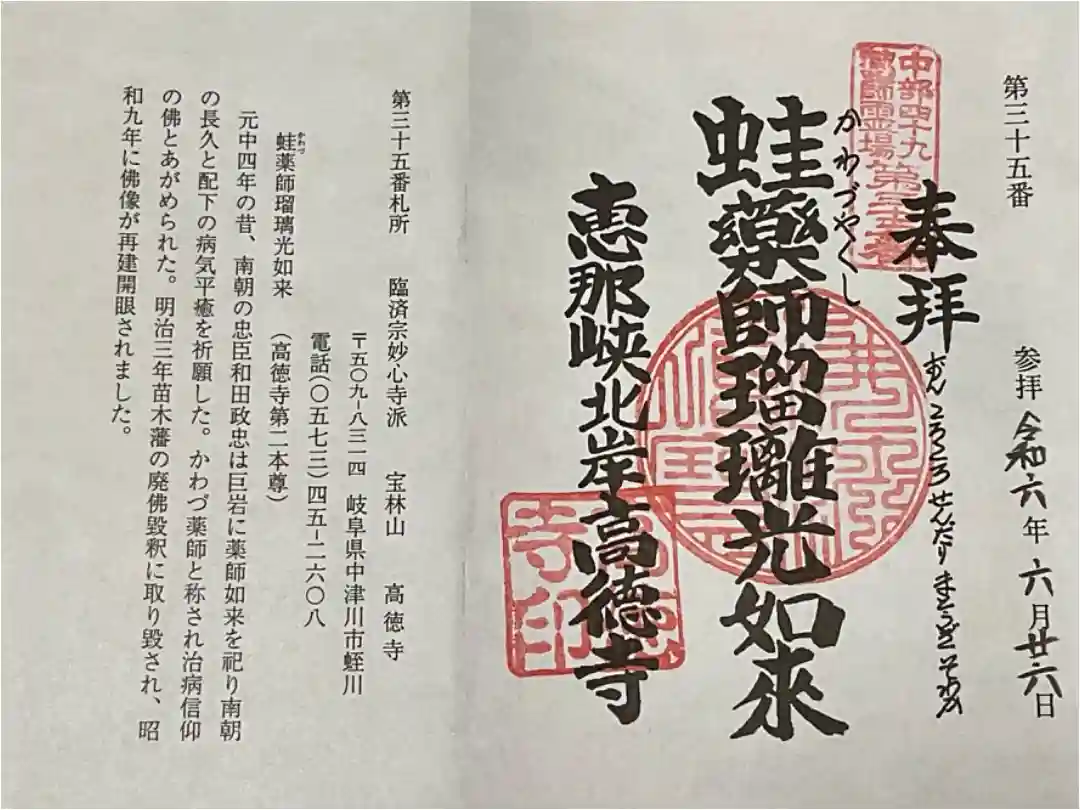 第三十五番
参拝 令和六年 六月廿六日
奉拝
おん ころころ せんだり まとうぎ そわか
中部四十九
薬師霊場第三十五番
かわづやくし
蛙藥師瑠璃光如來
恵那峡北岸高德寺
高徳
寺印
第三十五番札所 臨済宗妙心寺派 宝林山 高徳寺
〒五〇九-八三一四 岐阜県中津川市蛭川
電話(〇五七三)四五-二六〇八
蛙薬師瑠璃光如来 (高徳寺第二本尊)
かわづ
元中四年の昔、南朝の忠臣和田政忠は巨岩に薬師如来を祀り南朝
の長久と配下の病気平癒を祈願した。かわづ薬師と称され治病信仰
の佛とあがめられた。明治三年苗木藩の廃佛毀釈に取り毀され、昭
和九年に佛像が再建開眼されました。